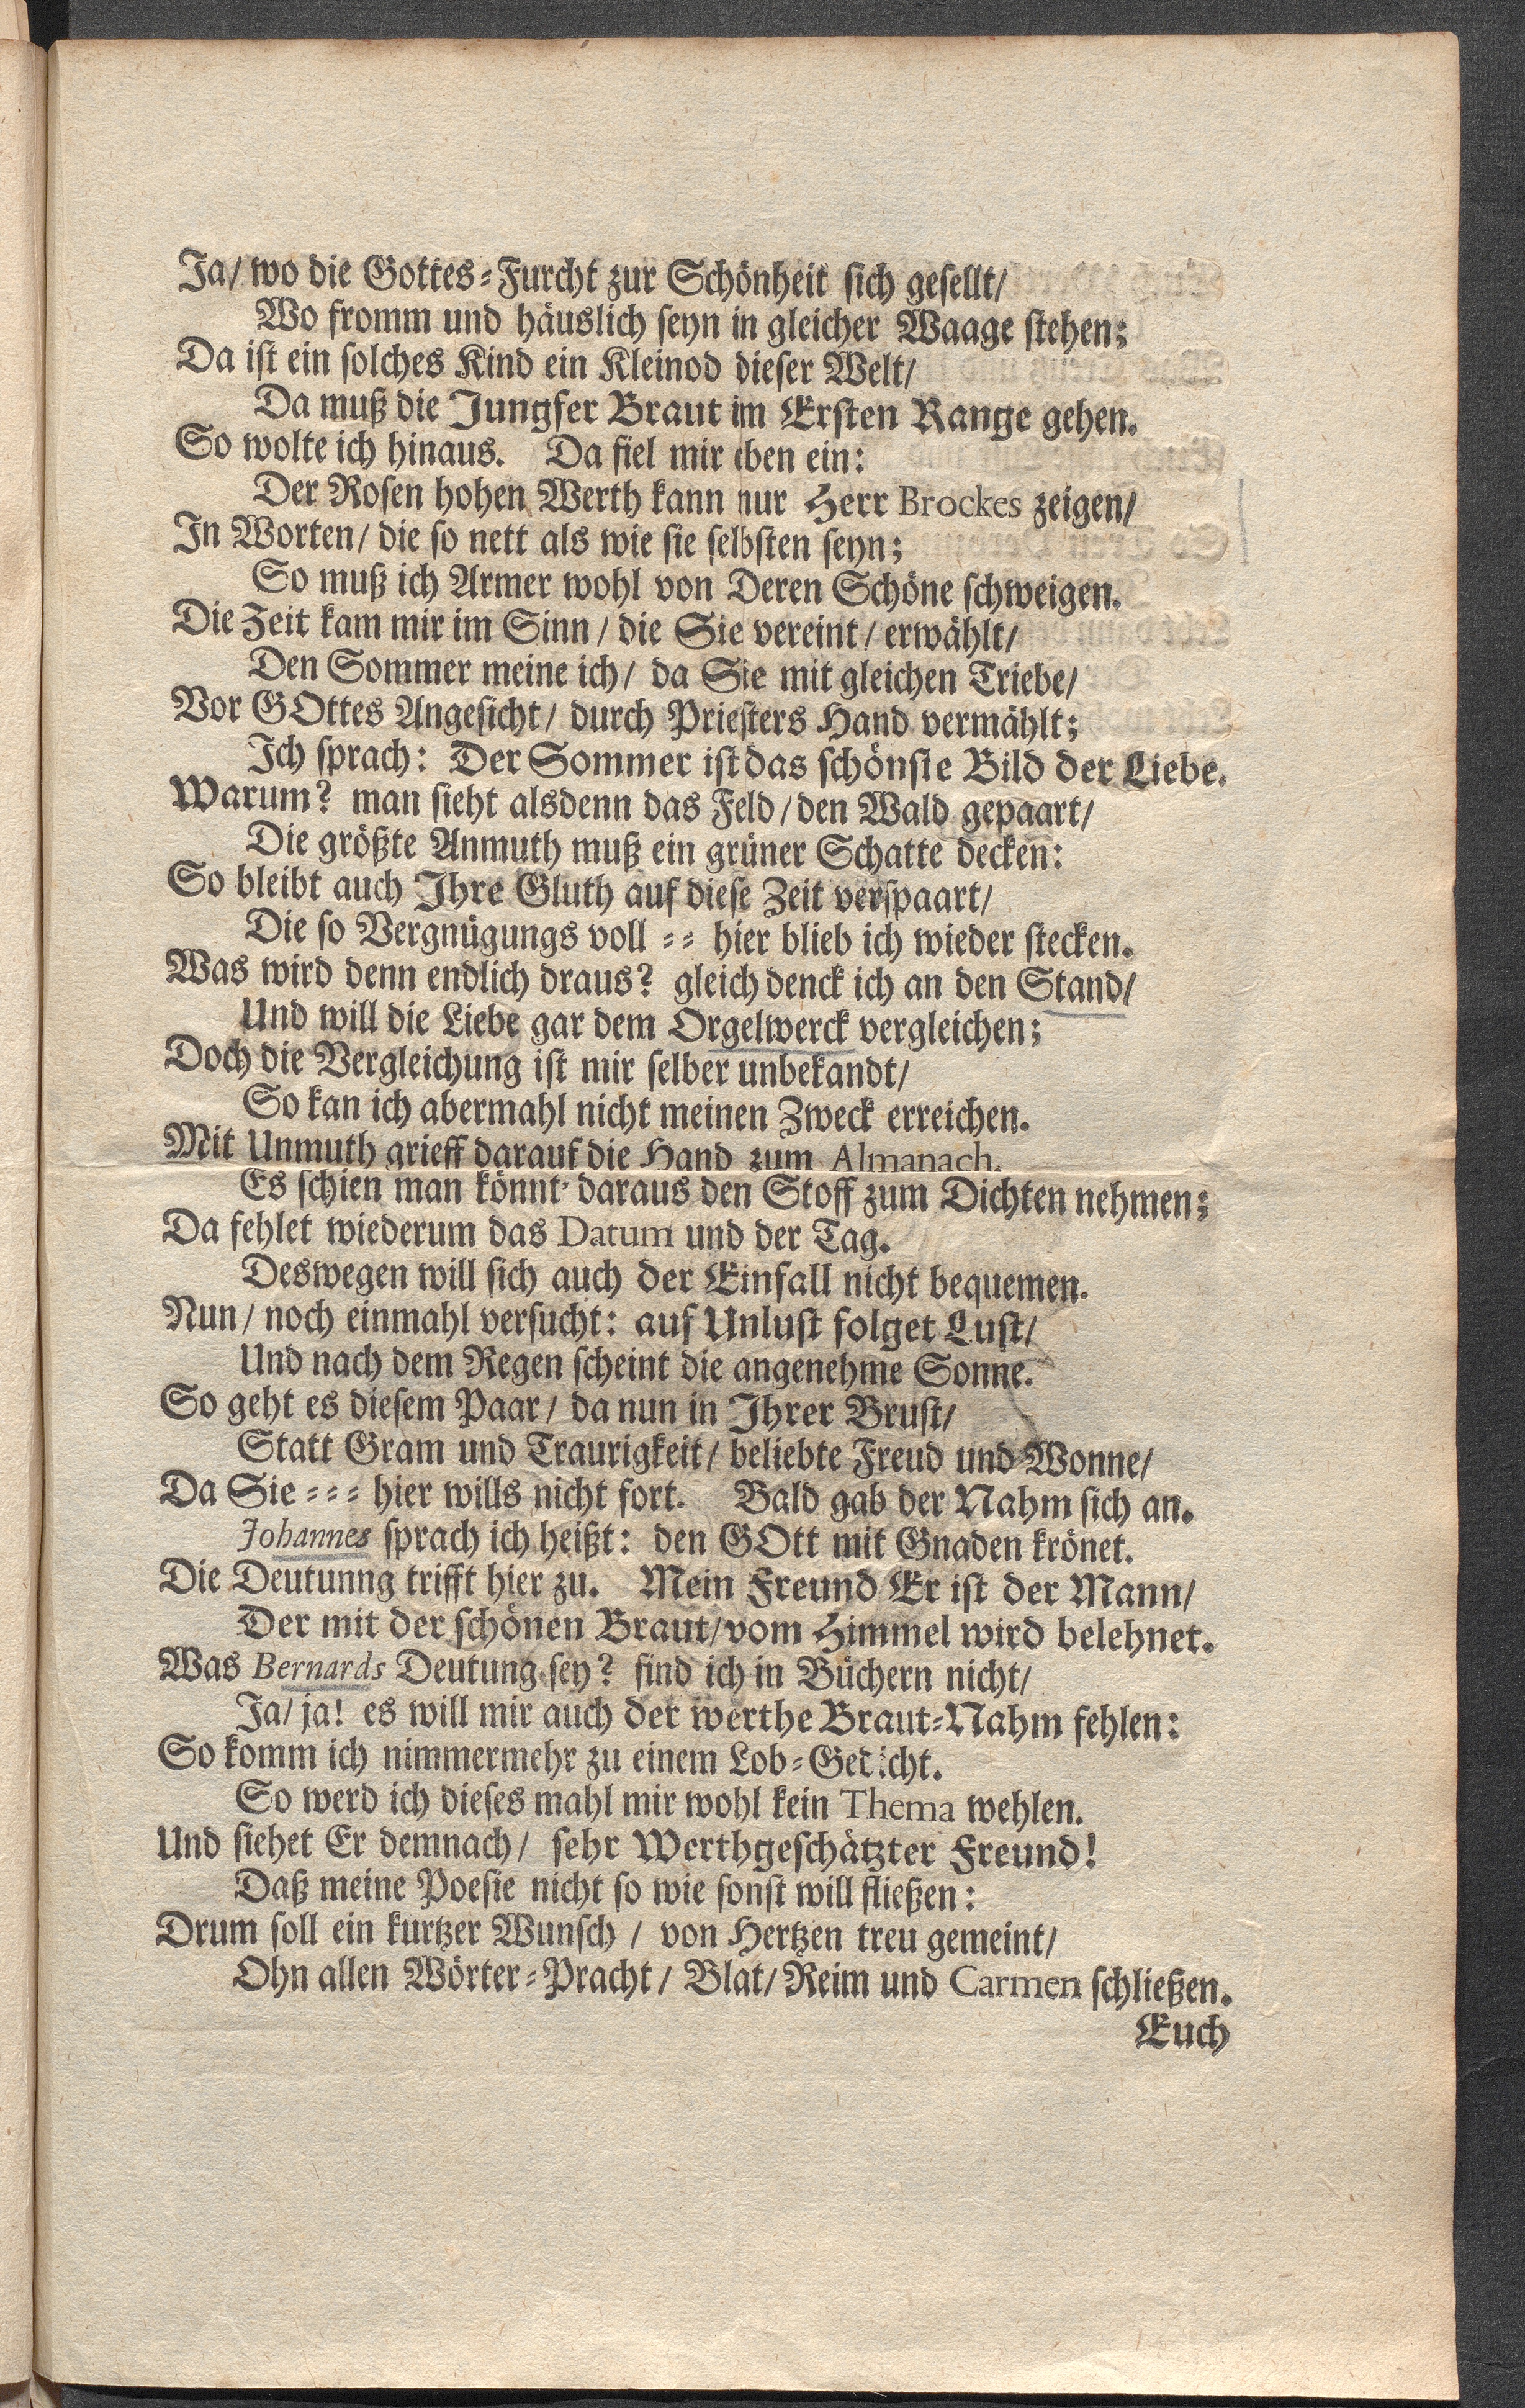 Ja/ wo die Gottes-Furcht zur Schönheit sich gesellt/
Wo fromm und häuslich seyn in gleicher Waage stehen;
Da ist ein solches Kind ein Kleinod dieser Welt/
Da muß die Jungfer Braut im Ersten Range gehen.
So wolte ich hinaus. Da fiel mir eben ein:
Der Rosen hohen Werth kann nur Herr Brockes zeigen/
In Worten/ die so nett als wie sie selbsten seyn;
So muß ich Armer wohl von Deren Schöne schweigen.
Die Zeit kam mir im Sinn/ die Sie vereint/ erwählt/
Den Sommer meine ich/ da Sie mit gleichen Triebe/
Vor GOttes Angesicht/ durch Priesters Hand vermählt;
Ich sprach: Der Sommer ist das schönste Bild der Liebe.
Warum? man sieht alsdenn das Feld/ den Wald gepaart/
Die größte Anmuth muß ein grüner Schatte decken:
So bleibt auch Ihre Gluth auf diese Zeit verspaart/
Die so Vergnügungs voll -- hier blieb ich wieder stecken.
Was wird denn endlich draus? gleich denck ich an den Stand/
Und will die Liebe gar dem Orgelwerck vergleichen;
Doch die Vergleichung ist mir selber unbekandt/
So kan ich abermahl nicht meinen Zweck erreichen.
Mit Unmuth grieff darauf die Hand zum Almanach.
Es schien man könnt' daraus den Stoff zum Dichten nehmen;
Da fehlet wiederum das Datum und der Tag.
Deswegen will sich auch der Einfall nicht bequemen.
Nun/ noch einmahl versucht: auf Unlust folget Lust/
Und nach dem Regen scheint die angenehme Sonne.
So geht es diesem Paar/ da nun in Ihrer Brust/
Statt Gram und Traurigkeit/ beliebte Freud und Wonne/
Da Sie --- hier wills nicht fort. Bald gab der Nahm sich an.
Johannes sprach ich heißt: den GOtt mit Gnaden krönet.
Die Deutunng trifft hier zu. Mein Freund Er ist der Mann/
Der mit der schönen Braut/ vom Himmel wird belehnet.
Was Bernards Deutung sey? find ich in Büchern nicht/
Ja/ ja! es will mir auch der werthe Braut-Nahm fehlen:
So komm ich nimmermehr zu einem Lob-Gedicht.
So werd ich dieses mahl mir wohl kein Thema wehlen.
Und siehet Er demnach/ sehr Werthgeschätzter Freund!
Daß meine Poesie nicht so wie sonst will fließen:
Drum soll ein kurtzer Wunsch/ von Hertzen treu gemeint/
Ohn allen Wörter-Pracht/ Blat/ Reim und Carmen schließen.
Euch